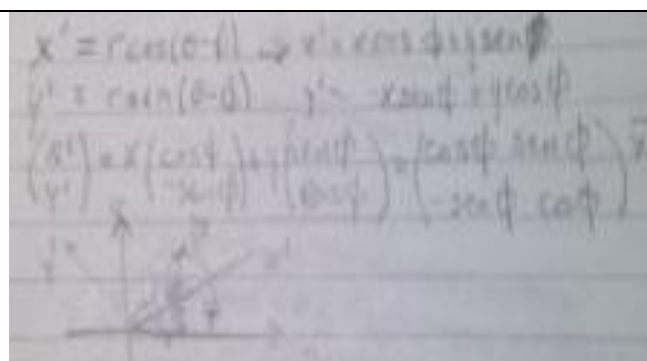 x' = r cos(θ-φ) → x' = x cos φ + y sen φ
y' = r sen(θ-φ) y' = -x sen φ + y cos φ
(x' y') = x (cos φ -sen φ) + y (sen φ cos φ) = (cos φ sen φ -sen φ cos φ) x
y' x'